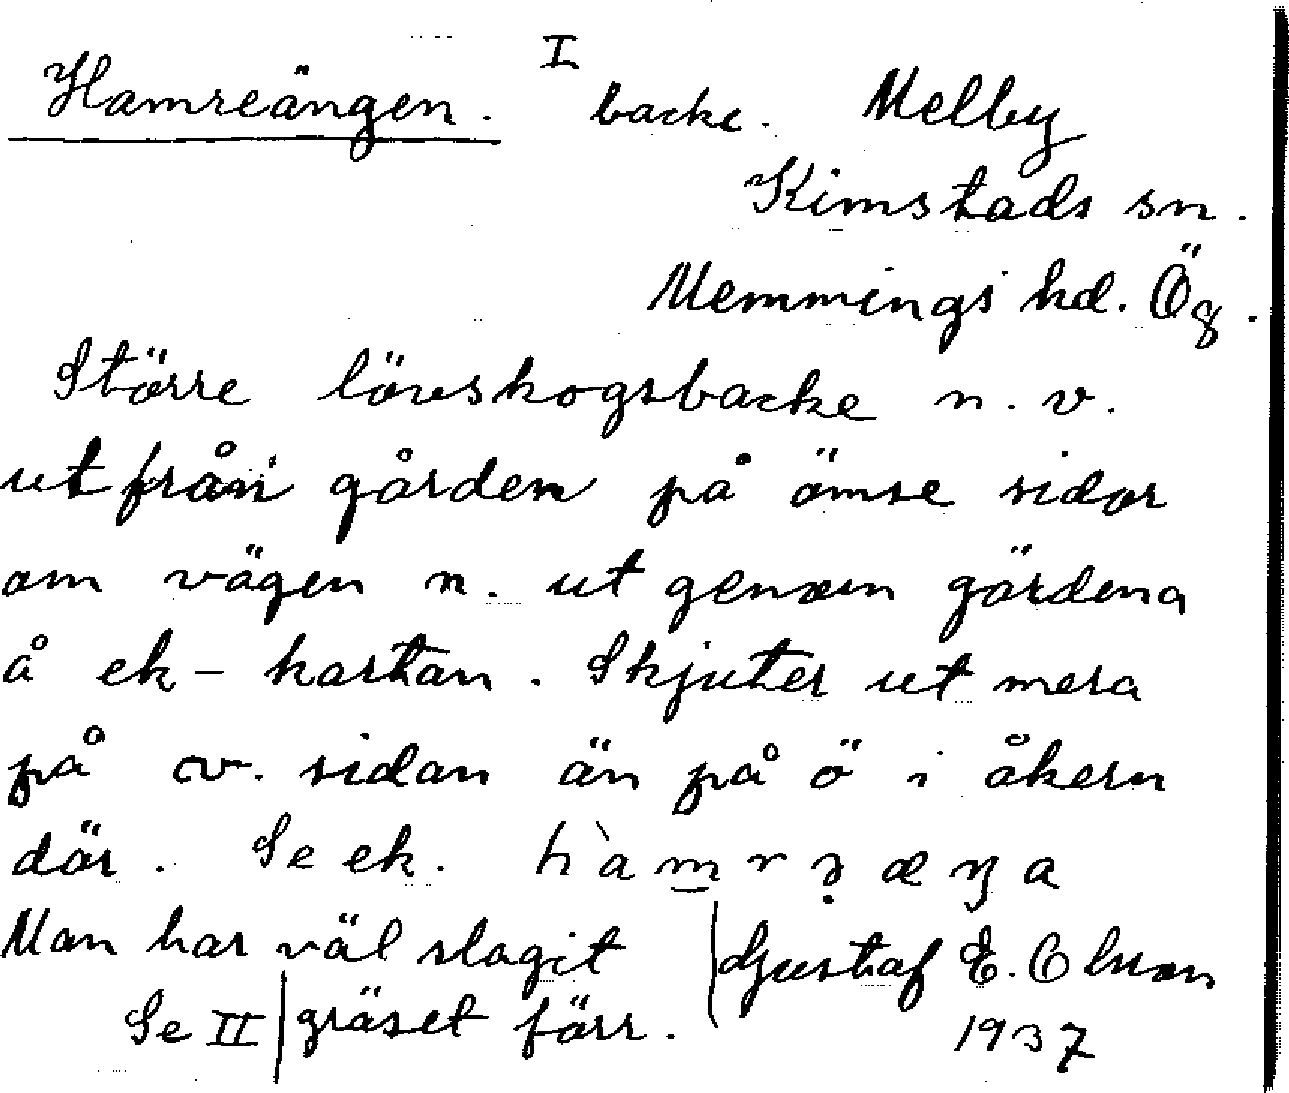 I
Hamreängen. backe. Melby
Kimstads sn.
Memmings hd. Ög.
Större lövskogsbacke n. v.
ut från gården på ömse sidor
om vägen n. ut genom gärdena
å ek-kartan. Skjuter ut mera
på v. sidan än på ö i åkern
där. Se ek.
Man har väl slagit | Gustaf E. Olsson
Se II | gräset förr. 1937